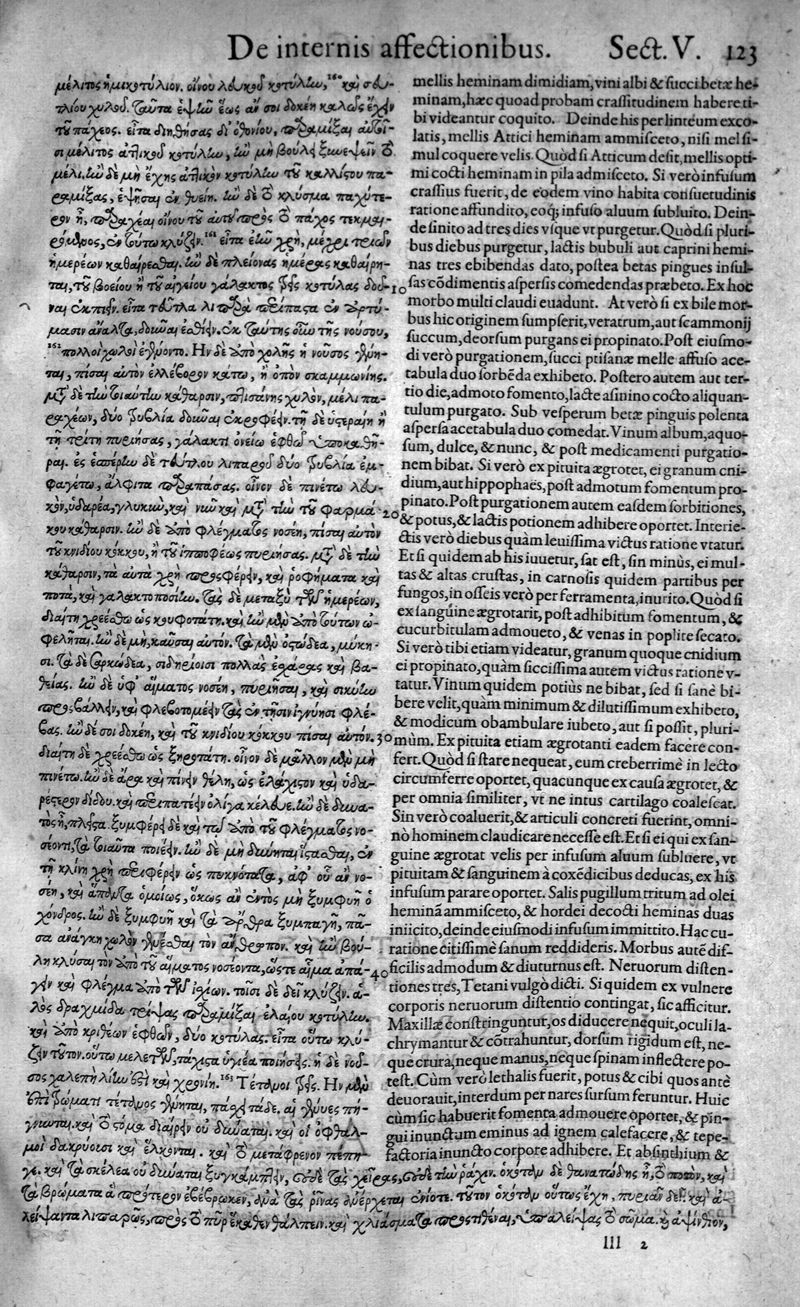 De internis affectionibus. Sect. V. 123
μέλιτος ἡμικοτύλιον. οἴνου λευκοῦ κοτύλην, καὶ σευ-
τλίου χυλοῦ. ταῦτα ἑψεῖν ἕως ἄν σοι δοκέῃ καλῶς ἔχειν
τοῦ πάχεος. εἶτα διηθήσας δι' ὀθονίου, παραμίξαι
μέλιτος ἀττικοῦ κοτύλην, ἢν μὴ βούλῃ ξυνεψεῖν τὸ
μέλι, ἢν δὲ μὴ ἔχῃς ἀττικὸν κοτύλην τοῦ καλλίστου πα-
ραμίξας, ἑψῆσαι ἐν θυείῃ. ἢν δὲ τὸ κλύσμα παχύτε-
ρον ᾖ, παραχέαι οἴνου τοῦ αὐτοῦ πρὸς τὸ πάχος τεκμαι-
ρόμενος, ἐν τούτῳ κλύζειν. εἶτα ἐᾶν χρὴ, μέχρι τριῶν
ἡμερέων καθαίρεσθαι. ἢν δὲ πλείονας ἡμέρας καθαίρη-
ται, τοῦ βοείου ἢ τοῦ αἰγείου γάλακτος τρεῖς κοτύλας δοῦ-
ναι ἐκπιεῖν. εἶτα τεῦτλα λιπαρὰ ἐν ἀρτύ-
μασιν ἄναλτα, διδόναι ἐσθίειν. ἐκ ταύτης τῆς νούσου,
πολλοὶ χωλοὶ ἐγένοντο. Ην δὲ ἀπὸ χολῆς ἡ νοῦσος γένη-
ται, πῖσαι αὐτὸν ἐλλέβορον κάτω, ἢ ὀπὸν σκαμμωνίης.
μετὰ δὲ τὴν τοιαύτην κάθαρσιν, πτισάνης χυλὸν, μέλι πα-
ραχέων, δύο τρυβλία διδόναι ἐκροφεῖν. τῇ δὲ ὑστεραίῃ ἢ
τῇ τρίτῃ πυριήσας, γάλακτι ὀνείῳ ἑφθῷ ὑποκαθῆ-
ραι. ἐς ἑσπέρην δὲ τεύτλου λιπαροῦ δύο τρυβλία ἐμ-
φαγέτω, ἄλφιτα παραπάσας. οἶνον δὲ πινέτω λευ-
κὸν, ὑδαρέα, γλυκὺν, καὶ νῦν καὶ μετὰ τὴν τοῦ φαρμά-
κου κάθαρσιν. ἢν δὲ ἀπὸ φλέγματος νοσέῃ, πῖσαι αὐτὸν
τοῦ κνιδίου κόκκου, ἢ τοῦ ἱπποφέως πυριήσας. μετὰ δὲ τὴν
κάθαρσιν, τὰ αὐτὰ χρὴ προσφέρειν, καὶ ῥοφήματα καὶ
ποτὰ, καὶ γαλακτοποσίην. τὰς δὲ μεταξὺ τῶν ἡμερέων,
διαίτῃ χρεέσθω ὡς κουφοτάτῃ. καὶ ἢν μὲν ἀπὸ τούτων ὠ-
φελῆται. ἢν δὲ μὴ, καῦσαι αὐτόν. τὰ μὲν ὀστώδεα, μύκη-
σι. τὰ δὲ σαρκώδεα, σιδηρίοισι πολλὰς ἐσχάρας καὶ βα-
θείας. ἢν δὲ ὑφ' αἵματος νοσέῃ, πυριῆσαι, καὶ σικύην
προσβάλλειν, καὶ φλεβοτομέειν τὰς ἐν τῇσιν ἰγνύησι φλέ-
βας. ἢν δέ σοι δοκέῃ, καὶ τοῦ κνιδίου κόκκου πῖσαι αὐτὸν.
διαίτῃ δὲ χρεέσθω ὡς ξηροτάτῃ. οἶνον δὲ μᾶλλον μὲν μὴ
πινέτω. ἢν δὲ ἄρα καὶ πίνειν θέλῃ, ὡς ἐλάχιστον καὶ ὑδα-
ρέστερον δίδου. καὶ περιπατέειν ὀλίγα κέλευε. ἢν δὲ δυνα-
τὸς ᾖ, πλεῖστα. ξυμφέρει δὲ καὶ τῷ ἀπὸ τοῦ φλέγματος νο-
σέοντι, τὰ τοιαῦτα ποιέειν. ἢν δὲ μὴ δύνηται ἵστασθαι, ἐν
τῇ κλίνῃ χρὴ περιφέρειν ὡς πυκνότατα, ἀφ' οὗ ἂν νο-
σέῃ, καὶ ἅπαντα ὁμοίως, ὅκως ἂν ἐντὸς μὴ ξυμφυῇ ὁ
χόνδρος. ἢν δὲ ξυμφυῇ καὶ τὰ ἄρθρα ξυμπαγῇ, πᾶ-
σα ἀνάγκη χωλὸν γενέσθαι τὸν ἄνθρωπον. καὶ ἢν βού-
λῃ κλύσαι τὸν ἀπὸ τοῦ αἵματος νοσέοντα, ὥστε αἷμα ἀπά-
γειν καὶ φλέγμα ἀπὸ τῶν ἰσχίων. τοῖσι δὲ δεῖ κλύζειν. ἁ-
λὸς δραχμίδα τρίψας παραμῖξαι ἐλαίου κοτύλην.
καὶ ἀπὸ κριθέων ἑφθῶν, δύο κοτύλας. εἶτα οὕτω κλύ-
ζειν τοῦτον. οὕτω μελετῶν, τάχιστα ὑγιέα ποιήσεις. ἡ δὲ νοῦ-
σος χαλεπὴ λίην ἐστὶ καὶ χρονίη. Τέτανοι τρεῖς. Ην μὲν
ἐπὶ τρώματι τέτανος γένηται, πάσχει τάδε. αἱ γένυες πή-
γνυνται. καὶ τὸ στόμα διαίρειν οὐ δύναται. καὶ οἱ ὀφθαλ-
μοὶ δακρύουσι καὶ ἕλκονται. καὶ τὸ μετάφρενον πέπη-
γε. καὶ τὰ σκέλεα οὐ δύναται ξυγκάμπτειν, οὐδὲ τὰς χεῖρας, οὐδὲ τὴν ῥάχιν. ὁκόταν δὲ θανατώδης ᾖ, τὸ ποτὸν, καὶ
τὰ βρώματα ἃ πρότερον ἐβεβρώκει, ἀνὰ τὰς ῥῖνας ἀνέρχεται ἐνίοτε. τοῦτον ὁκόταν οὕτως ἔχῃ, πυριᾶν δεῖ. καὶ ἀ-
λείψαντα λιπαρῶς, πρὸς τὸ πῦρ ἕκαθεν θάλπειν. καὶ χλιάσματα προστιθέναι, ὑπαλείψας τὸ σῶμα. καὶ ἀψίνθιον,
mellis heminam dimidiam, vini albi & succi betæ he-
minam, hæc quoad probam crassitudinem habere ti-
bi videantur coquito. Deinde his per linteum exco-
latis, mellis Attici heminam ammisceto, nisi mel si-
mul coquere velis. Quòd si Atticum desit, mellis opti-
mi cocti heminam in pila admisceto. Si verò infusum
crassius fuerit, de eodem vino habita consuetudinis
ratione affundito, eoq́; infuso aluum subluito. Dein-
de sinito ad tres dies vsque vt purgetur. Quòd si pluri-
bus diebus purgetur, lactis bubuli aut caprini hemi-
nas tres ebibendas dato, postea betas pingues insul-
sas cõdimentis aspersis comedendas præbeto. Ex hoc
10
morbo multi claudi euadunt. At verò si ex bile mor-
bus hic originem sumpserit, veratrum, aut scammonij
succum, deorsum purgans ei propinato. Post eiusmo-
di verò purgationem, succi ptisanæ melle affuso ace-
tabula duo sorbēda exhibeto. Postero autem aut ter-
tio die, admoto fomento, lacte asinino cocto aliquan-
tulum purgato. Sub vesperum betæ pinguis polenta
aspersa acetabula duo comedat. Vinum album, aquo-
sum, dulce, & nunc, & post medicamenti purgatio-
nem bibat. Si verò ex pituita ægrotet, ei granum cni-
dium, aut hippophaës, post admotum fomentum pro-
pinato. Post purgationem autem easdem sorbitiones,
20
& potus, & lactis potionem adhibere oportet. Interie-
ctis verò diebus quàm leuissima victus ratione vtatur.
Et si quidem ab his iuuetur, sat est, sin minùs, ei mul-
tas & altas crustas, in carnosis quidem partibus per
fungos, in osseis verò per ferramenta, inurito. Quòd si
ex sanguine ægrotarit, post adhibitum fomentum, &
cucurbitulam admoueto, & venas in poplite secato.
Si verò tibi etiam videatur, granum quoque cnidium
ei propinato, quàm siccissima autem victus ratione v-
tatur. Vinum quidem potiùs ne bibat, sed si sanè bi-
bere velit, quàm minimum & dilutissimum exhibeto,
& modicum obambulare iubeto, aut si possit, pluri-
30
mùm. Ex pituita etiam ægrotanti eadem facere con-
fert. Quòd si stare nequeat, eum creberrimè in lecto
circumferre oportet, quacunque ex causa ægrotet, &
per omnia similiter, vt ne intus cartilago coalescat.
Sin verò coaluerit, & articuli concreti fuerint, omni-
nò hominem claudicare necesse est. Et si ei qui ex san-
guine ægrotat velis per infusum aluum subluere, vt
pituitam & sanguinem à coxēdicibus deducas, ex his
infusum parare oportet. Salis pugillum tritum ad olei
heminā ammisceto, & hordei decocti heminas duas
iniicito, deinde eiusmodi infusum immittito. Hac cu-
ratione citissimè sanum reddideris. Morbus autē dif-
40
ficilis admodum & diuturnus est. Neruorum disten-
tiones tres, Tetani vulgò dicti. Si quidem ex vulnere
corporis neruorum distentio contingat, sic afficitur.
Maxillæ constringuntur, os diducere nequit, oculi la-
chrymantur & cōtrahuntur, dorsum rigidum est, ne-
que crura, neque manus, neque spinam inflectere po-
test. Cùm verò lethalis fuerit, potus & cibi quos antè
deuorauit, interdum per nares sursum feruntur. Huic
cùm sic habuerit fomenta admouere oportet, & pin-
gui inunctum eminus ad ignem calefacere, & tepe-
factoria inuncto corpore adhibere. Et absinthium &
lll 2